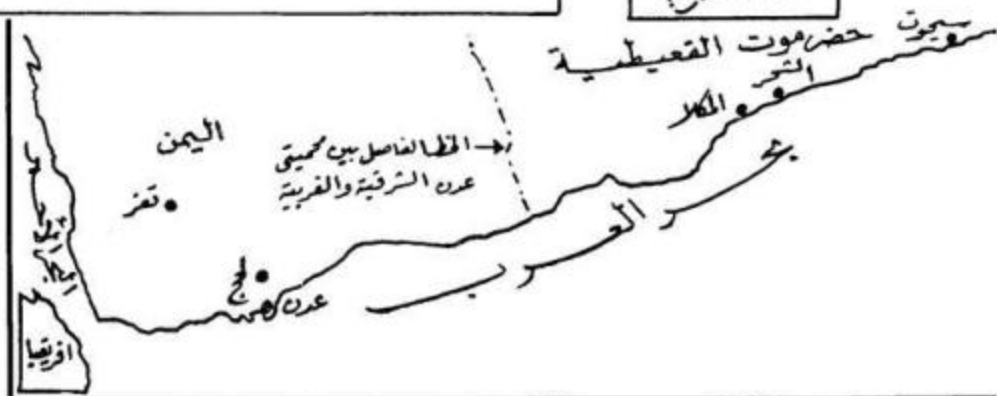 سيحوت
حضرموت القعيطية
الشحر
المكلا
اليمن
الخط الفاصل بين محميتي
عدن الشرقية والغربية
تعز
لحج
عدن
بحر العرب
البحر الأحمر
افريقيا